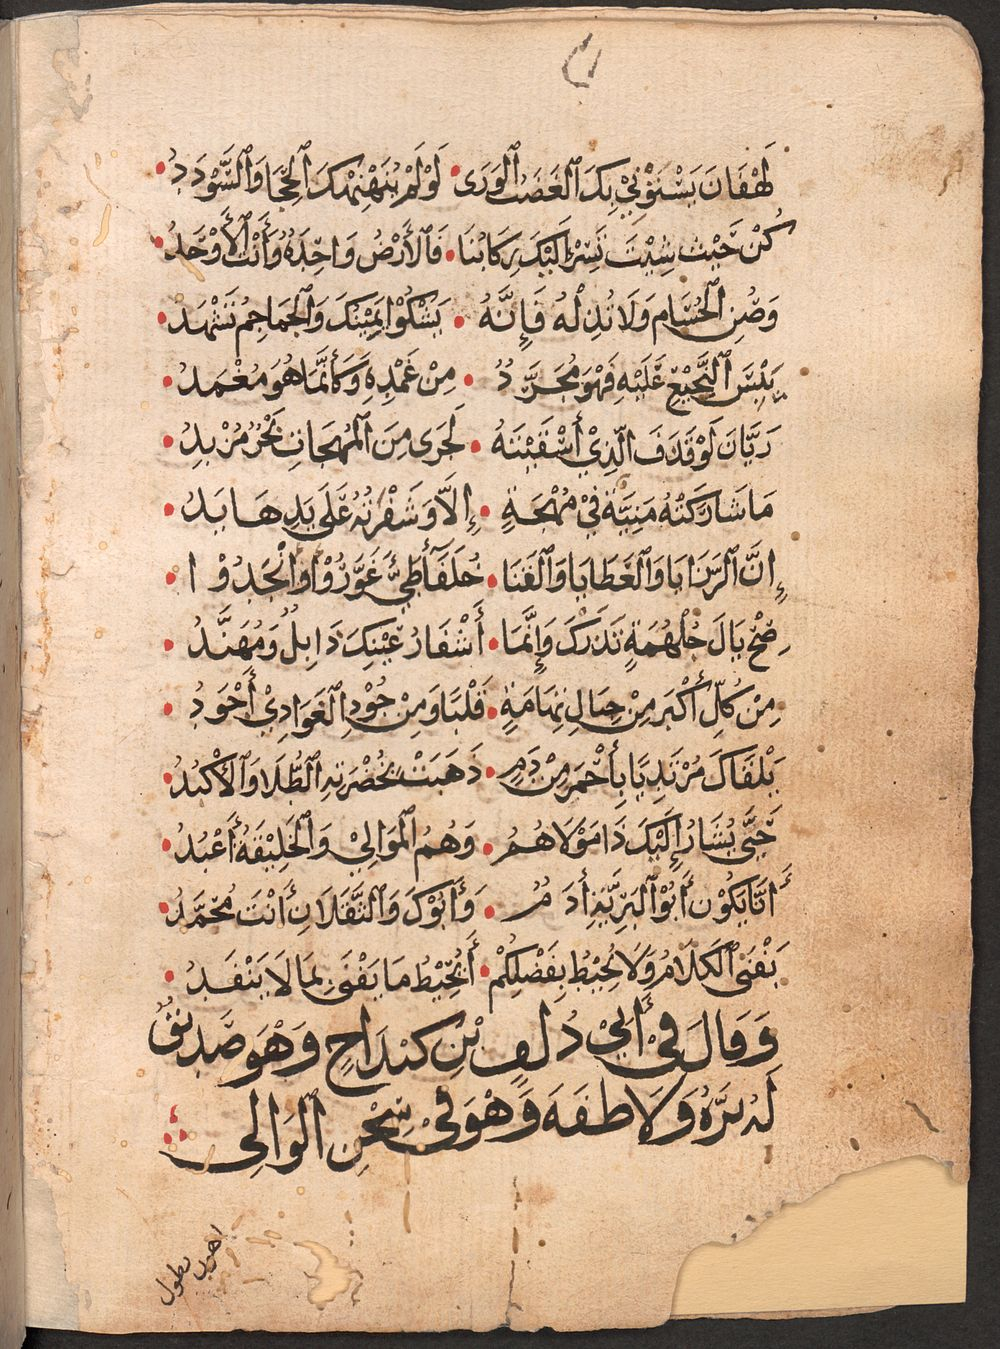 لَهْفَانَ يَسْتَوْبِيْ بِكَ ٱلْغَضَبُ ٱلْوَرَى • لَوْ لَمْ يُنَهْنِهْكَ ٱلْحِجَا وَٱلسُّؤْدَدُ •
كُنْ حَيْثُ شِئْتَ تَسِرْ إِلَيْكَ رِكَابُنَا • فَٱلْأَرْضُ وَاحِدَةٌ وَأَنْتَ ٱلْأَوْحَدُ •
وَصُنِ ٱلْحُسَامَ وَلَا تُذِلْهُ فَإِنَّهُ • يَشْكُوْا يَمِيْنَكَ وَٱلْجَمَاجِمُ تَشْهَدُ •
يَبِسَ ٱلنَّجِيْعُ عَلَيْهِ فَهْوَ مُجَرَّدٌ • مِنْ غِمْدِهِ وَكَأَنَّمَا هُوَ مُغْمَدُ •
رَيَّانَ لَوْ قَذَفَ ٱلَّذِيْ أَسْقَيْتَهُ • لَجَرَى مِنَ ٱلْمُهَجَاتِ بَحْرٌ مُزْبِدُ •
مَا شَارَكَتْهُ مَنِيَّةٌ فِيْ مُهْجَةٍ • إِلَّا وَشَفْرَتُهُ عَلَى يَدِهَا يَدُ •
إِنَّ ٱلرَّزَايَا وَٱلْعَطَايَا وَٱلْقَنَا • حُلَفَآءُ طَيٍّ غَوَّرُوْا وَأَنْجَدُوْا •
صِحْ يَالَ جُلْهُمَةٍ تَذَرْكَ وَإِنَّمَا • أَشْفَارُ عَيْنِكَ ذَابِلٌ وَمُهَنَّدُ •
مِنْ كُلِّ أَكْبَرَ مِنْ جِبَالِ تِهَامَةٍ • قَلْبًا وَمِنْ جُوْدِ ٱلْغَوَادِيْ أَجْوَدُ •
يَلْقَاكَ مُرْتَدِيًا بِأَحْمَرَ مِنْ دَمٍ • ذَهَبَتْ بِخُضْرَتِهِ ٱلطُّلَا وَٱلْأَكْبُدُ •
حَتَّى يُشَارَ إِلَيْكَ ذَا مَوْلَاهُمُ • وَهُمُ ٱلْمَوَالِيْ وَٱلْخَلِيْقَةُ أَعْبُدُ •
أَنَّا يَكُوْنُ أَبُوْ ٱلْبَرِيَّةِ أَدَمٌ • وَأَبُوْكَ وَٱلثَّقَلَانِ أَنْتَ مُحَمَّدُ •
يَفْنَى ٱلْكَلَامُ وَلَا يُحِيْطُ بِفَضْلِكُمْ • أَيُحِيْطُ مَا يَفْنَى بِمَا لَا يَنْفَدُ •
وَقَالَ فِيْ أَبِيْ دُلَفِ بْنِ كُنْدَاجٍ وَهْوَ صَدِيْقٌ
لَهُ بَرَّهُ وَلَاطَفَهُ وَهْوَ فِيْ سِجْنِ ٱلْوَالِي